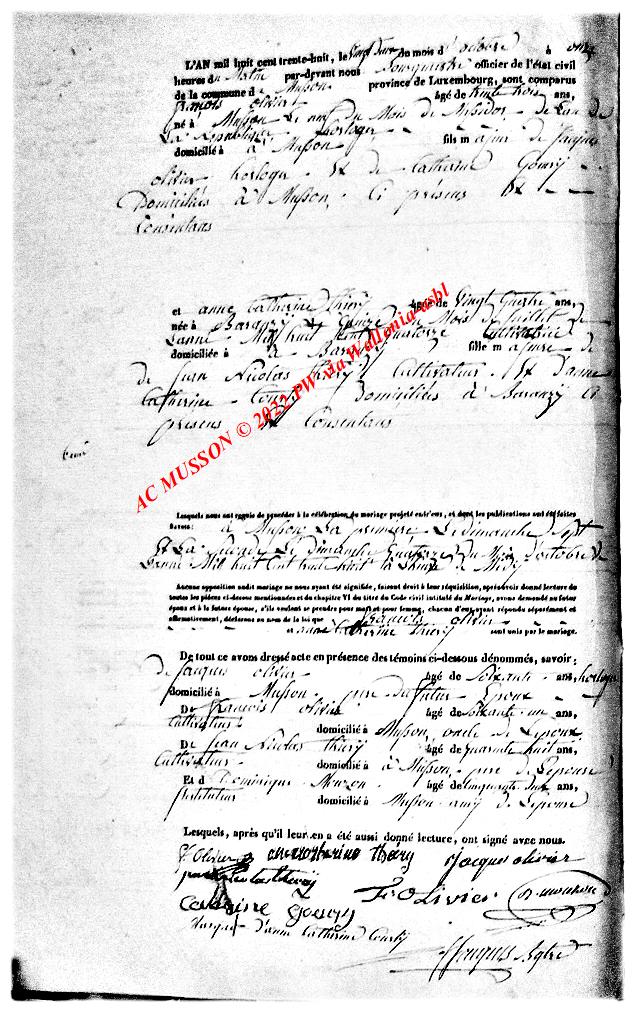 L'AN mil huit cent trente-huit, le vingt deux du mois d'octobre à onze
heures du Matin par-devant nous Bourgmestre officier de l'état civil
de la commune d Musson province de Luxembourg, sont comparus
françois olivier âgé de trente trois ans,
né à Musson Le neuf du Mois de Messidor de L'an de
La République horloger fils majeur de Jacques
domicilié à Musson
olivier horloger Et de Catherine Goury
Domiciliés à Musson, Ci présens Et
Consentans
et anne Catherine thiery âgée de Vingt Quatre ans,
née à Baranzy Le Quinze du Mois de Juillet de
L'anne Mil huit Cent Quatorze Cultivatrice
domiciliée à Baranzy fille majeure de
de Jean Nicolas thiery Cultivateur Et D'anne
Catherine Courty Domiciliés à Baranzy Ci
présens Et Consentans
Lesquels nous ont requis de procéder à la célébration du mariage projeté entr'eux, et dont les publications ont été faites
savoir: à Musson, La première Le dimanche Sept
Et La Seconde Le dimanche Quatorze du Mois d'octobre de
L'anne Mil huit Cent trente huit à L'heure de Midy
Aucune opposition audit mariage ne nous ayant été signifiée, faisant droit à leur réquisition, après avoir donné lecture de
toutes les pièces ci-dessus mentionnées et du chapitre VI du titre du Code civil intitulé du Mariage, avons demandé au futur
époux et à la future épouse, s'ils veulent se prendre pour mari et pour femme, chacun d'eux ayant répondu séparément et
affirmativement, déclarons au nom de la loi que françois olivier
et anne Catherine thiery sont unis par le mariage.
De tout ce avons dressé acte en présence des témoins ci-dessous dénommés, savoir:
de Jacques olivier âgé de Soixante ans, horloger
domicilié à Musson père du futur Epoux
De François olivier âgé de Soixante un ans,
Cultivateur domicilié à Musson, oncle de L'epoux
De Jean Nicolas thiery âgé de quarante huit ans,
Cultivateur domicilié à à Musson père de L'epouse
Et d Dominique Mouzon âgé de Cinquante deux ans,
Instituteur domicilié à Musson amy de L'epouse
Lesquels, après qu'il leur en a été aussi donné lecture, ont signé avec nous.
F. Olivier anne catherine thiery Jacques olivier
F. Olivier D. mouzon
Catherine Goury
Marque d'anne Catherine Courty
AC MUSSON © 2022 PW via Wallonia-asbl